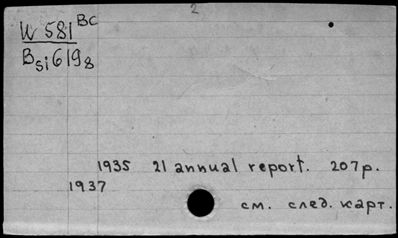 2
W 581 BC
Bsi6198
1935 21 annual report. 207p.
1937
см. след. карт.